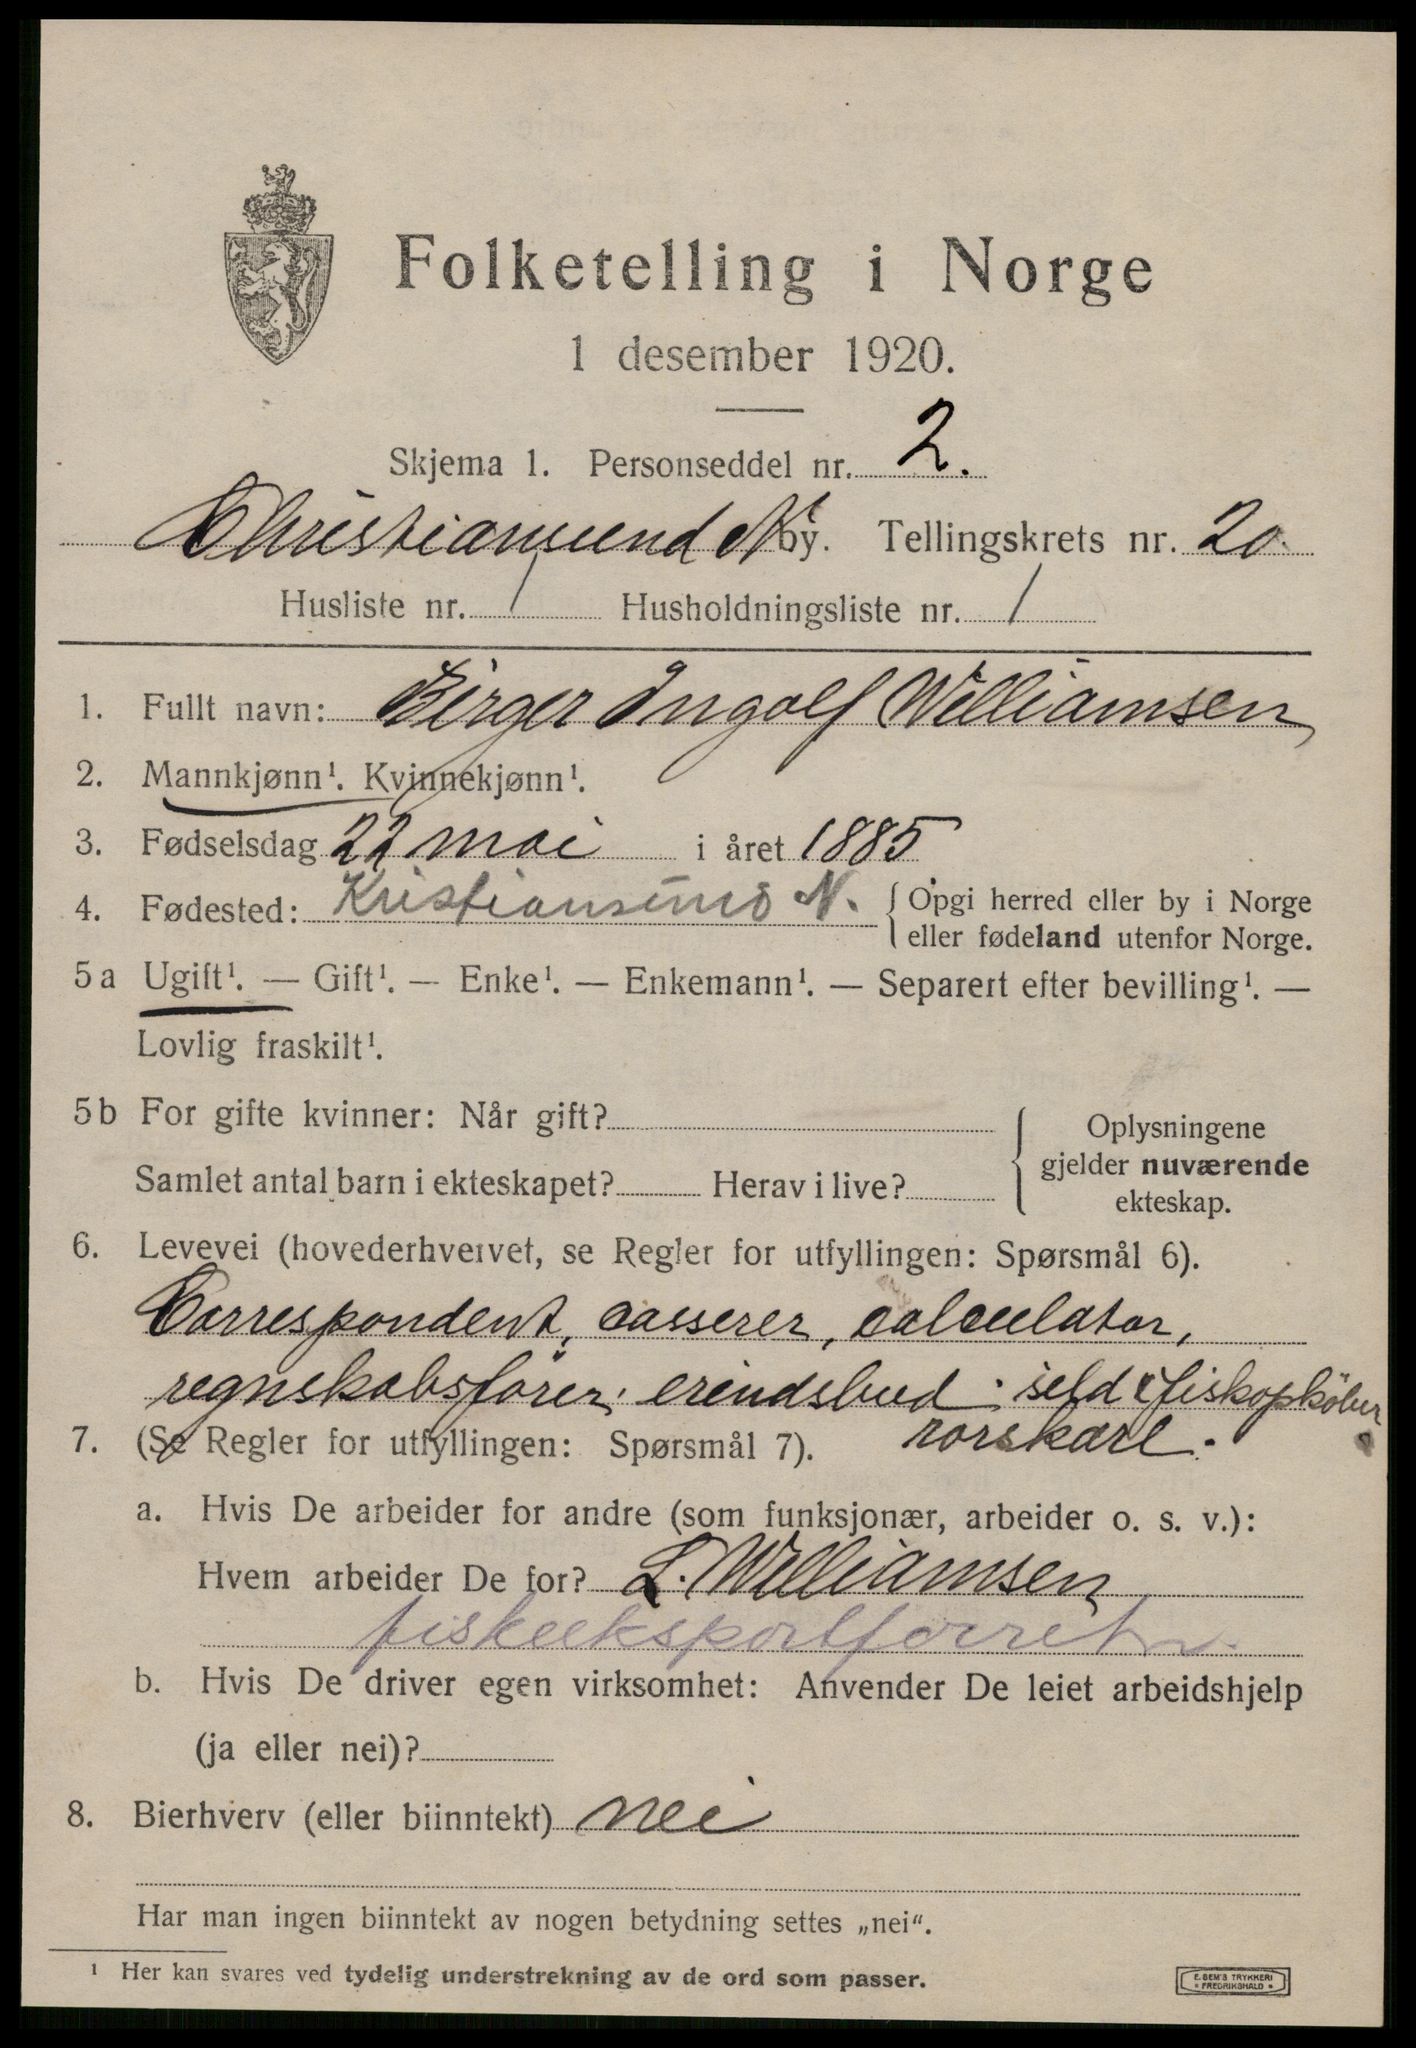 Folketelling i Norge
1 desember 1920.
Skjema 1. Personseddel nr. 2.
Christiansund N by. Tellingskrets nr. 20
Husliste nr. 1 Husholdningsliste nr. 1
1. Fullt navn: Birger Ingolf Williamsen
2. Mannkjønn¹. Kvinnekjønn¹.
3. Fødselsdag 22 mai i året 1885
4. Fødested: Kristiansund N. { Opgi herred eller by i Norge
eller fødeland utenfor Norge.
5a Ugift¹. — Gift¹. — Enke¹. — Enkemann¹. — Separert efter bevilling¹. —
Lovlig fraskilt¹.
5b For gifte kvinner: Når gift?
Samlet antal barn i ekteskapet? Herav i live?
{ Oplysningene
gjelder nuværende
ekteskap.
6. Levevei (hovederhvervet, se Regler for utfyllingen: Spørsmål 6).
Correspondent, casserer, calculator,
regnskabsfører, erindsbud, sild & fiskopköber
rorskarl.
7. (Se Regler for utfyllingen: Spørsmål 7).
a. Hvis De arbeider for andre (som funksjonær, arbeider o. s. v.):
Hvem arbeider De for? L. Williamsen
fiskeeksportforretn.
b. Hvis De driver egen virksomhet: Anvender De leiet arbeidshjelp
(ja eller nei)?
8. Bierhverv (eller biinntekt) nei
Har man ingen biinntekt av nogen betydning settes „nei“.
¹ Her kan svares ved tydelig understrekning av de ord som passer.
E. SEM'S TRYKKERI
• FREDRIKSHALD •